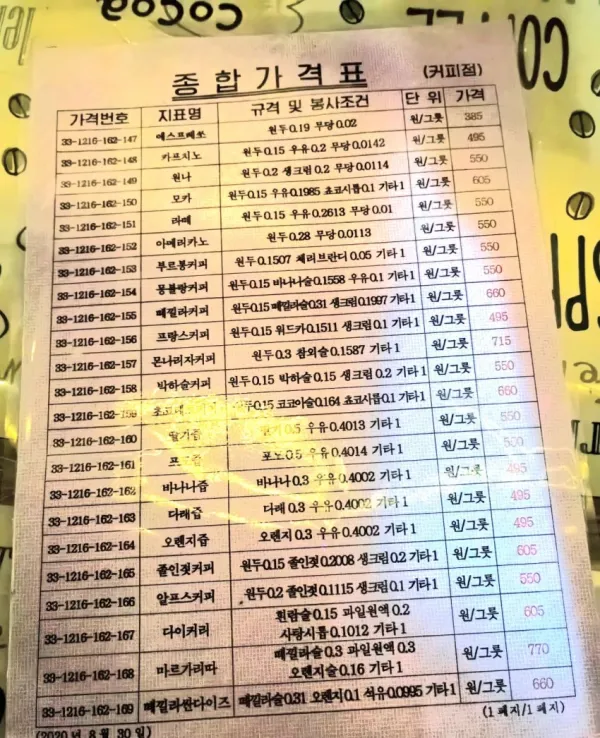 cocoa
종합가격표
(커피점)
가격번호 지표명 규격 및 봉사조건 단 위 가격
33-1216-162-147 에스프레쏘 원두0.19 무당0.02 원/그릇 385
33-1216-162-148 카프치노 원두0.15 우유0.2 무당0.0142 원/그릇 495
33-1216-162-149 윈나 원두0.2 생크림0.2 무당0.0114 원/그릇 550
33-1216-162-150 모카 원두0.15 우유0.1985 쵸코시름0.1 기타1 원/그릇 605
33-1216-162-151 라떼 원두0.15 우유0.2613 무당0.01 원/그릇 550
33-1216-162-152 아메리카노 원두0.28 무당0.0113 원/그릇 550
33-1216-162-153 부르봉커피 원두0.1507 체리브란디0.05 기타1 원/그릇 550
33-1216-162-154 몽블랑커피 원두0.15 바나나술0.1558 우유0.1 기타1 원/그릇 550
33-1216-162-155 떼낄라커피 원두0.15 떼낄라술0.31 생크림0.1997 기타1 원/그릇 660
33-1216-162-156 프랑스커피 원두0.15 위드카0.1511 생크림0.1 기타1 원/그릇 495
33-1216-162-157 몬나리자커피 원두0.3 참외술0.1587 기타1 원/그릇 715
33-1216-162-158 박하술커피 원두0.15 박하술0.15 생크림0.2 기타1 원/그릇 550
33-1216-162-159 원두0.15 코코아술0.164 쵸코시름0.1 기타1 원/그릇 660
33-1216-162-160 딸기즙 딸기0.5 우유0.4013 기타1 원/그릇 550
33-1216-162-161 포도즙 포도0.5 우유0.4014 기타1 원/그릇 550
33-1216-162-162 바나나즙 바나나0.3 우유0.4002 기타1 원/그릇 495
33-1216-162-163 다래즙 다래0.3 우유0.4002 기타1 원/그릇 495
33-1216-162-164 오렌지즙 오렌지0.3 우유0.4002 기타1 원/그릇 495
33-1216-162-165 졸인젖커피 원두0.15 졸인젖0.2008 생크림0.2 기타1 원/그릇 605
33-1216-162-166 알프스커피 원두0.2 졸인젖0.1115 생크림0.1 기타1 원/그릇 550
33-1216-162-167 다이커리 흰람술0.15 파일원액0.2 원/그릇 605
사탕시름0.1012 기타1
33-1216-162-168 마르가리따 떼낄라술0.3 파일원액0.3 원/그릇 770
오렌지술0.16 기타1
33-1216-162-169 떼낄라싼다이즈 떼낄라술0.31 오렌지0.1 석유0.0995 기타1 원/그릇 660
(2020년 8월 30일)
(1페지/1페지)